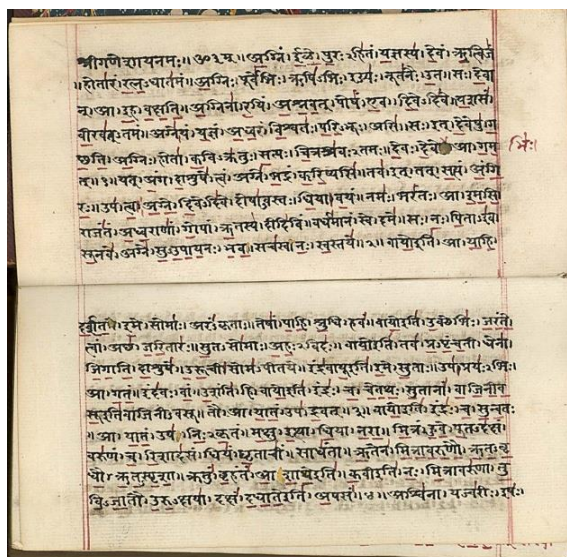 श्रीगणेशायनमः॥ॐ३म्॥अग्निं।ईळे।पुरःऽहितं।यज्ञस्य।देवं।ऋत्विजं
॥होतारं।रत्नऽधातमं॥अग्निः।पूर्वेभिः।ऋषिऽभिः।ईड्यः।नूतनैः।उत।सः।देवा
न्।आ।इह।वक्षति॥अग्निना।रयिं।अश्नवत्।पोषं।एव।दिवेऽदिवे।यशसं
वीरवत्ऽतमं॥अग्ने।यं।यज्ञं।अध्वरं।विश्वतः।परिऽभूः।असि।सः।इत्।देवेषु।ग
च्छति॥अग्निः।होता।कविऽक्रतुः।सत्यः।चित्रश्रवःऽतमः।देवः।देवे।आ।गम
भिः।
त्॥१॥यत्।अंग।दाशुषे।त्वं।अग्ने।भद्रं।करिष्यसि।तव।इत्।तत्।सत्यं।अंगि
रः॥उप।त्वा।अग्ने।दिवेऽदिवे।दोषाऽवस्तः।धिया।वयं।नमः।भरंतः।आ।इमसि
राजंतं।अध्वराणां।गोपां।ऋतस्य।दीदिविं।वर्धमानं।स्वे।दमे॥सः।नः।पिताऽइव
सूनवे।अग्ने।सुऽउपायनः।भव।सचस्व।नः।स्वस्तये॥२॥वायोइति।आ।याहि।
दर्शत।इमे।सोमाः।अरंऽकृताः।तेषां।पाहि।श्रुधि।हवं॥वायोइति।उक्थेभिः।जरंते
त्वां।अच्छ।जरितारः।सुतऽसोमाः।अहःऽविदः॥वायोइति।तव।प्रऽपृंचती।धेना
जिगाति।दाशुषे।उरूची।सोमऽपीतये॥इंद्रवायूइति।इमे।सुताः।उप।प्रयःऽभिः।
आ।गतं।इंदवः।वां।उशंति।हि॥वायोइति।इंद्रः।च।चेतथः।सुतानां।वाजिनीव
सूइतिवाजिनीऽवसू।तौ।आ।यातं।उप।द्रवत्॥३॥वायोइति।इंद्रः।च।सुन्वतः
॥आ।यातं।उप।निःऽकृतं।मक्षु।इत्था।धिया।नरा॥मित्रं।हुवे।पूतऽदक्षं
वरुणं।च।रिशादसं।धियं।घृताचीं।साधंता॥ऋतेन।मित्रावरुणौ।ऋतऽवृ
धौ।ऋतऽस्पृशा।क्रतुं।बृहंतं।आशाथेइति॥कवीइति।नः।मित्रावरुणा।तु
विऽजातौ।उरुऽक्षया।दक्षं।दधातेइति।अपसं॥४॥अश्विना।यज्वरीः।इषः।